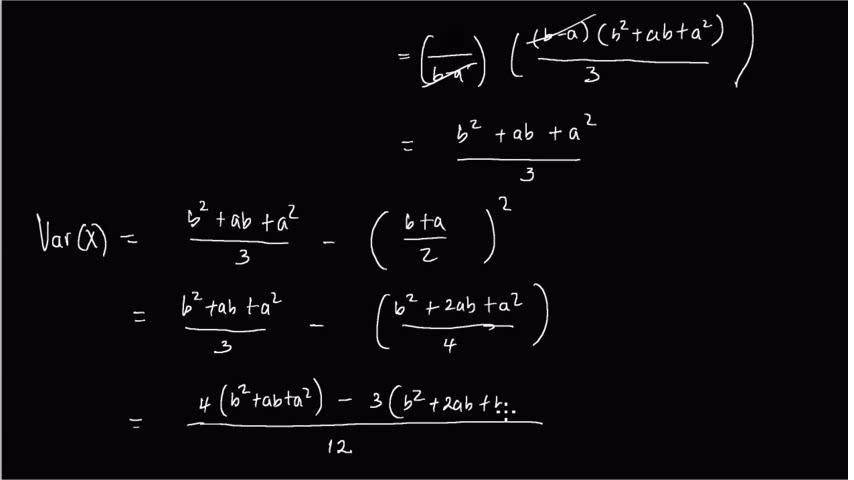 = (1/(b-a)) ((b-a)(b²+ab+a²)/3)
= (b²+ab+a²)/3
Var(X) = (b²+ab+a²)/3 - ((b+a)/2)²
= (b²+ab+a²)/3 - ((b²+2ab+a²)/4)
= (4(b²+ab+a²) - 3(b²+2ab+))/12